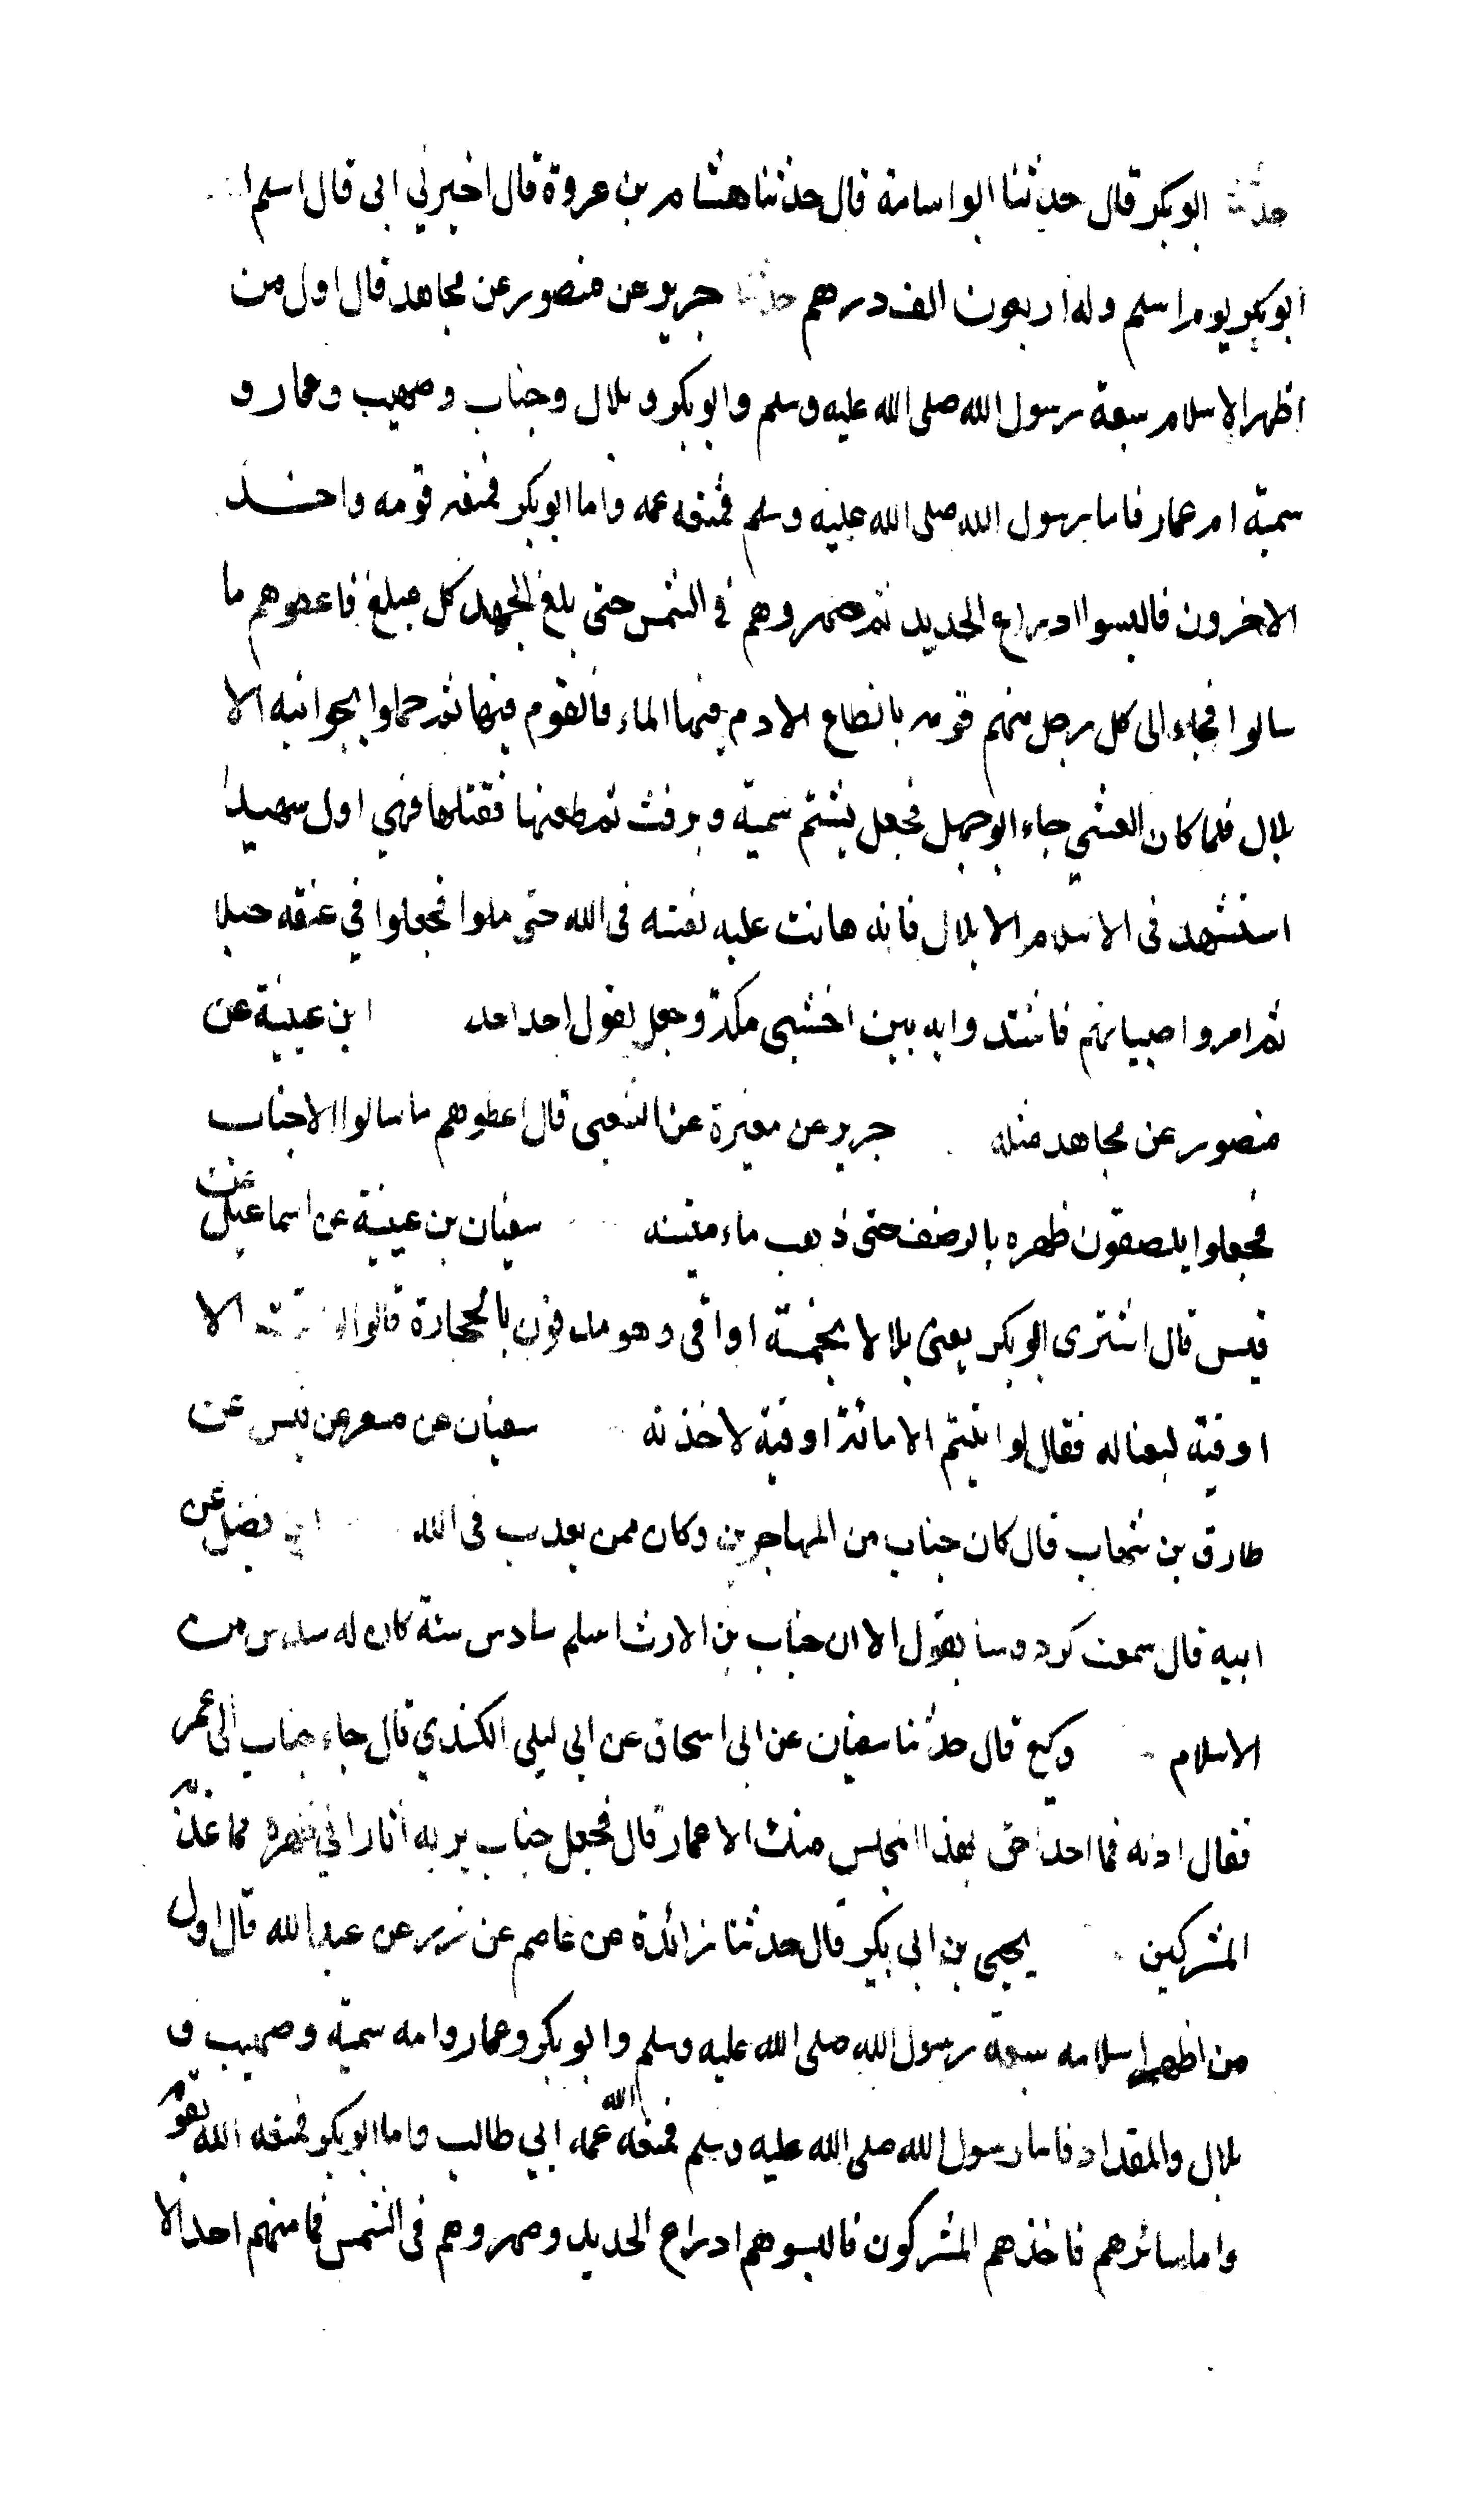 حدثنا ابو بكر قال حدثنا ابو اسامة قال حدثنا هشام بن عروة قال اخبرني ابي قال اسلم
ابو بكر يوم اسلم وله اربعون الف درهم حدثنا جرير عن منصور عن مجاهد قال اول من
اظهر الاسلام سبعة رسول الله صلى الله عليه وسلم وابو بكر وبلال وخباب وصهيب وعمار و
سمية ام عمار فاما رسول الله صلى الله عليه وسلم فمنعه عمه واما ابو بكر فمنعه قومه واخذ
الاخرون فالبسوا ادراع الحديد ثم صهروهم في الشمس حتى بلغ الجهد كل مبلغ فاعطوهم ما
سالوا فجاء الى كل رجل منهم قومه بانطاع الادم فيها الماء فالقوم فيها ثم حملوا بجوانبه الا
بلال فلما كان العشي جاء ابو جهل فجعل يشتم سمية ويرفث ثم طعنها فقتلها فهي اول شهيد
استشهد في الاسلام الا بلال فانه هانت عليه نفسه في الله حتى ملوا فجعلوا في عنقه حبلا
ثم امروا صبيانهم فاشتدوا به بين اخشبي مكة وجعل يقول احد احد ابن عيينة عن
منصور عن مجاهد مثله جرير عن مغيرة عن الشعبي قال اعطوهم ما سالوا الا خباب
فجعلوا يلصقون ظهره بالرضف حتى ذهب ماء متينه سفيان بن عيينة عن اسماعيل عن
قيس قال اشترى ابو بكر يعنى بلالا بخمسة اواقى وهو مدفون بالحجارة قالوا الا
اوقية لبعناله فقال لو ابيتم الا مائة اوقية لاخذته سفيان عن مسعر عن قيس عن
طارق بن شهاب قال كان خباب من المهاجرين وكان ممن يعذب في الله ابن فضيل عن
ابيه قال سمعت كردوسا يقول الا ان خباب بن الارت اسلم سادس ستة كان له سدس من
الاسلام وكيع قال حدثنا سفيان عن ابي اسحاق عن ابي ليلى الكندي قال جاء خباب الى عمر
فقال ادنه فما احد احق بهذا المجلس منك الا عمار قال فجعل خباب يريه آثارا في ظهره مما عذبه
المشركين يحيى بن ابي بكير قال حدثنا زائدة عن عاصم عن زر عن عبد الله قال اول
من اظهر اسلامه سبعة رسول الله صلى الله عليه وسلم وابو بكر وعمار وامه سمية وصهيب و
بلال والمقداد فاما رسول الله صلى الله عليه وسلم فمنعه الله عمه ابي طالب واما ابو بكر فمنعه الله بقومه
واما سائرهم فاخذهم المشركون فالبسوهم ادراع الحديد وصهروهم في الشمس فما منهم احد الا